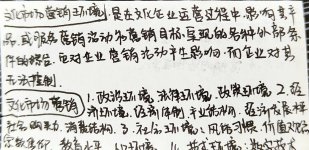 文化市场营销环境,是在文化企业运营过程中影响其产
品或服务营销活动与营销目标实现的各种外部条
件的综合。它对企业营销活动产生影响,而企业对其
无法控制。
文化市场营销 1.政治环境,法律环境,政策环境 2.经
济环境,经济体制,产业结构,经济发展
购买力,消费结构。3.社会环境:风俗习惯,价值观念
宗教信仰 教育水平 环境